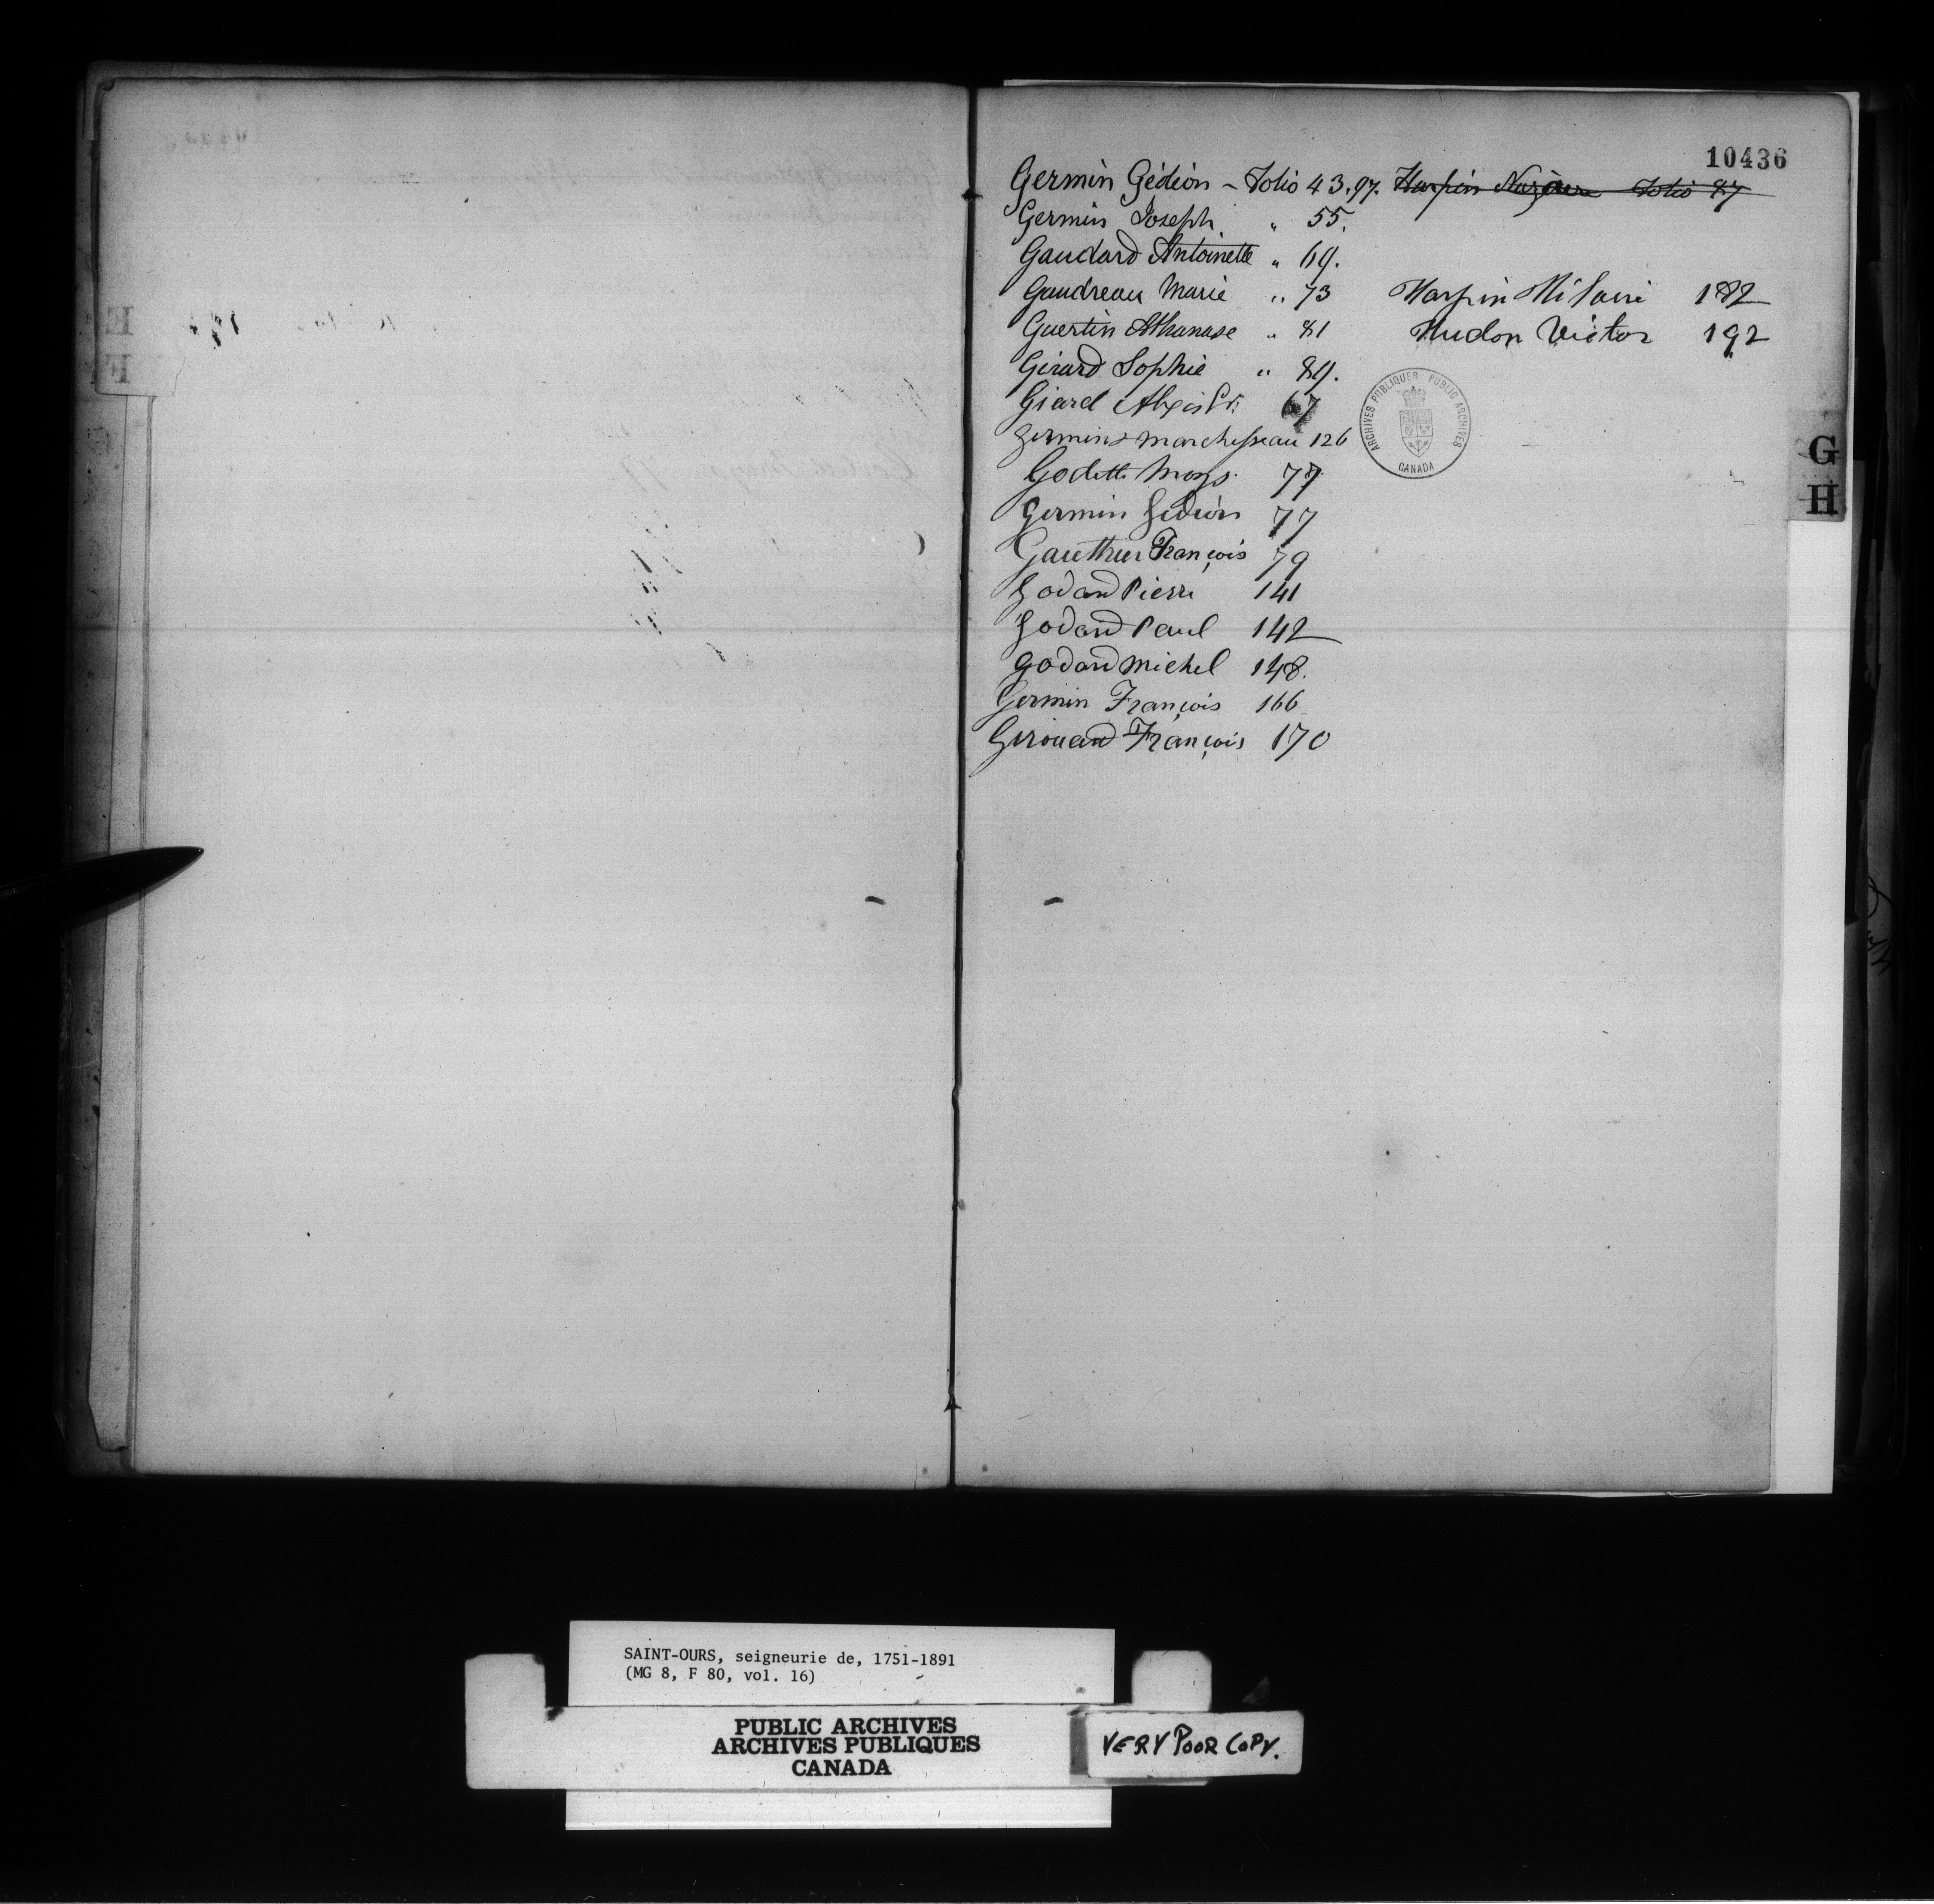 10436
Germin Gédéon - Folio 43.97. Harpin Nazaire Folio 87
Germin Joseph " 55.
Gaudard Antoinette " 69.
Gaudreau Marie " 73 Harpin Hilaire 182
Guertin Athanase " 81 Hudon Victor 192
Girard Sophie " 89.
Giard Alexis Pr. 67
Germin & Marchesseau 126
Godette Moys. 77
Germin Gédéon 77
Gauthier François 79
Godard Pierre 141
Godard Paul 142
Godard Michel 148.
Germin François 166
Girouard François 170
ARCHIVES PUBLIQUES PUBLIC ARCHIVES
CANADA
G
H
SAINT-OURS, seigneurie de, 1751-1891
(MG 8, F 80, vol. 16)
PUBLIC ARCHIVES
ARCHIVES PUBLIQUES
CANADA
VERY POOR COPY.